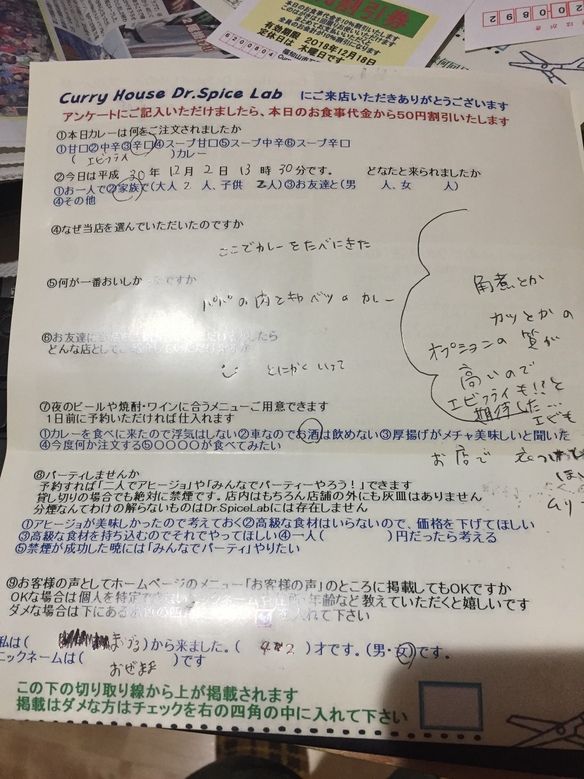 割引券
有効期限 2018年12月18日
定休日は、木曜日です
8200804
2 0 8 0 0 2
Curry House Dr.Spice Lab にご来店いただきありがとうございます
アンケートにご記入いただけましたら、本日のお食事代金から50円割引いたします
①本日カレーは何をご注文されましたか
①甘口②中辛③辛口④スープ甘口⑤スープ中辛⑥スープ辛口
( エビフライ )カレー
②今日は平成 30年 12月 2日 13時 30分です。 どなたと来られましたか
①お一人で②家族で(大人 2 人、子供 2人)③お友達と(男 人、女 人)
④その他
④なぜ当店を選んでいただいたのですか
ここでカレーをたべにきた
⑤何が一番おいしかったですか
パパの肉とキャベツのカレー
⑥お友達に
どんな店として
とにかくいって
角煮とか
カツとかの
オプションの質が
高いので
エビフライも!!と
期待した…
エビも
お店で
⑦夜のビールや焼酎・ワインに合うメニューご用意できます
1日前に予約いただければ仕入れます
①カレーを食べに来たので浮気はしない②車なのでお酒は飲めない③厚揚げがメチャ美味しいと聞いた
④今度何か注文する⑤○○○○が食べてみたい
⑧パーティしませんか
予約すれば「二人でアヒージョ」や「みんなでパーティーやろう!」できます
貸し切りの場合でも絶対に禁煙です。店内はもちろん店舗の外にも灰皿はありません
分煙なんてわけの解らないものはDr.SpiceLabには存在しません
①アヒージョが美味しかったので考えておく②高級な食材はいらないので、価格を下げてほしい
③高級な食材を持ち込むのでそれでやってほしい④一人( )円だったら考える
⑤禁煙が成功した暁には「みんなでパーティ」やりたい
⑨お客様の声としてホームページのメニュー「お客様の声」のところに掲載してもOKですか
OKな場合は個人を特定できない 年齢など教えていただくと嬉しいです
ダメな場合は下にある を入れて下さい
私は( )から来ました。( 42 )才です。(男・女)です。
ニックネームは( )です
この下の切り取り線から上が掲載されます
掲載はダメな方はチェックを右の四角の中に入れて下さい